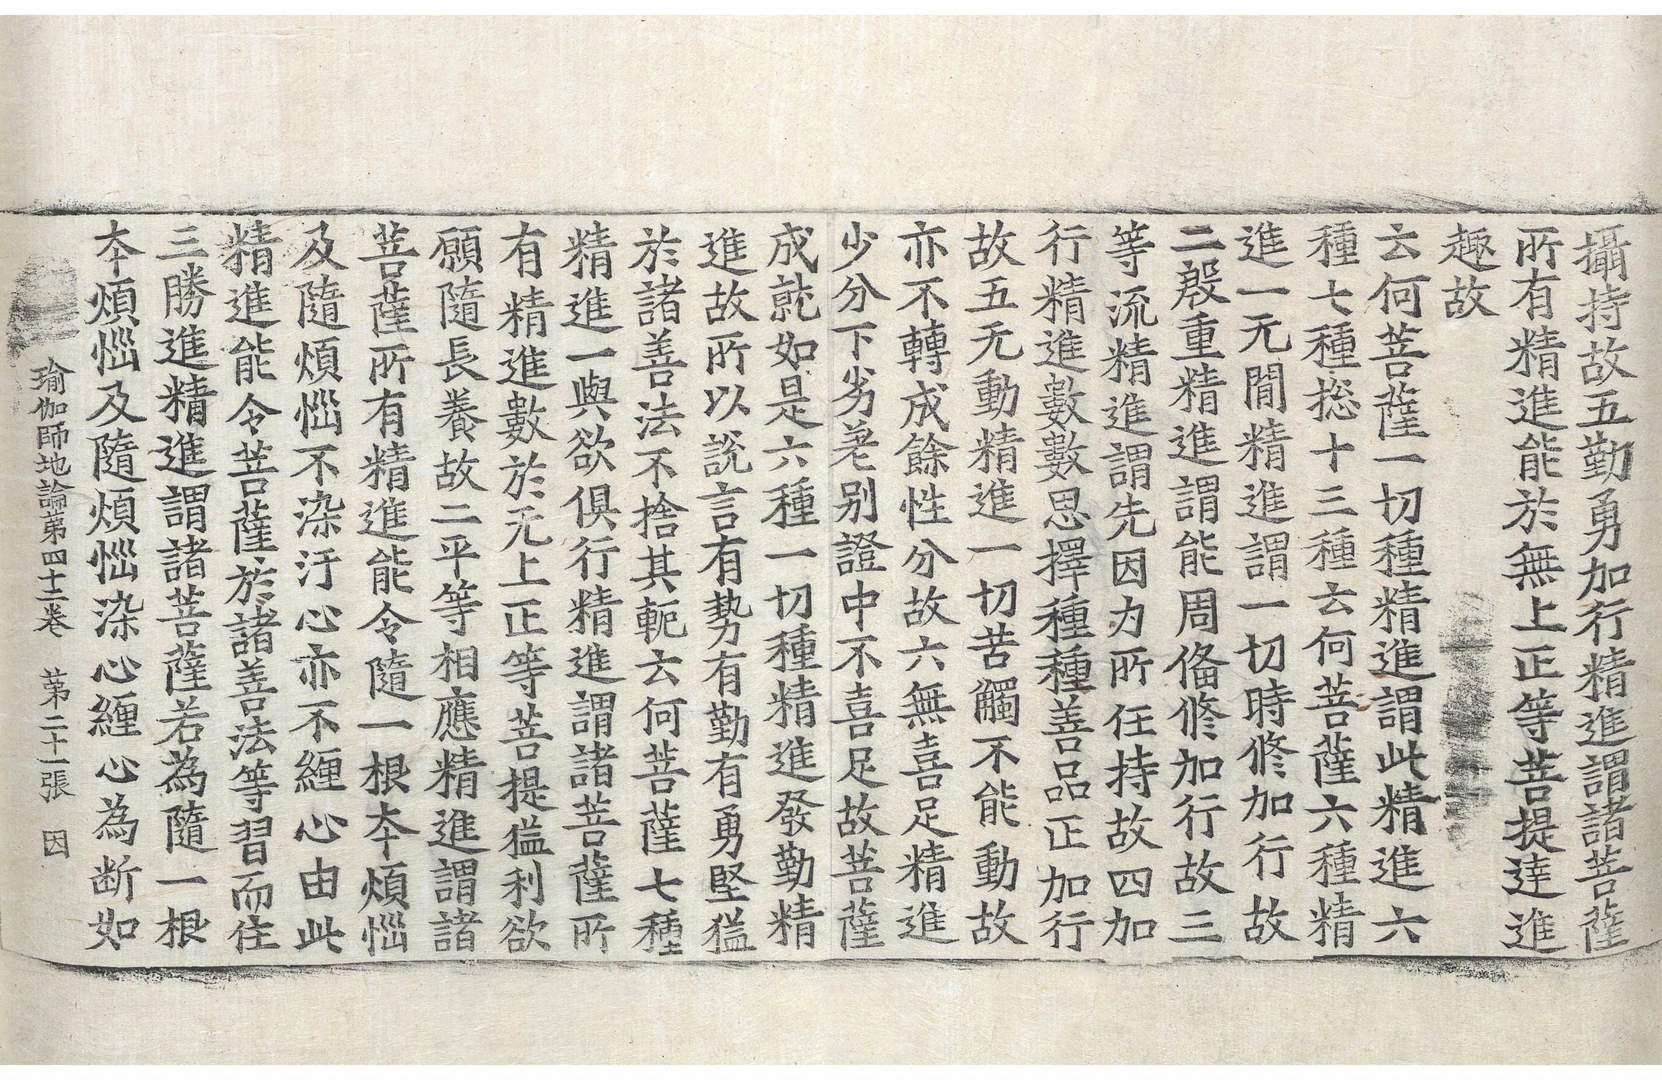 攝持故五勤勇加行精進謂諸菩薩
所有精進能於無上正等菩提達進
趣故
云何菩薩一切種精進謂此精進六
種七種揔十三種云何菩薩六種精
進一无閒精進謂一切時修加行故
二殷重精進謂能周俻修加行故三
等流精進謂先因力所任持故四加
行精進數數思擇種種善品正加行
故五无動精進一切苦觸不能動故
亦不轉成餘性分故六無喜足精進
少分下劣差别證中不喜足故菩薩
成就如是六種一切種精進發勤精
進故所以說言有勢有勤有勇堅猛
於諸善法不捨其軛云何菩薩七種
精進一與欲俱行精進謂諸菩薩所
有精進數於无上正等菩提猛利欲
願隨長養故二平等相應精進謂諸
菩薩所有精進能令隨一根夲煩惱
及隨煩惱不染汙心亦不纒心由此
精進能令菩薩於諸善法等習而住
三勝進精進謂諸菩薩若為隨一根
夲煩惱及隨煩惱染心纒心為断如
瑜伽師地論第四十二卷 第二十一張 因